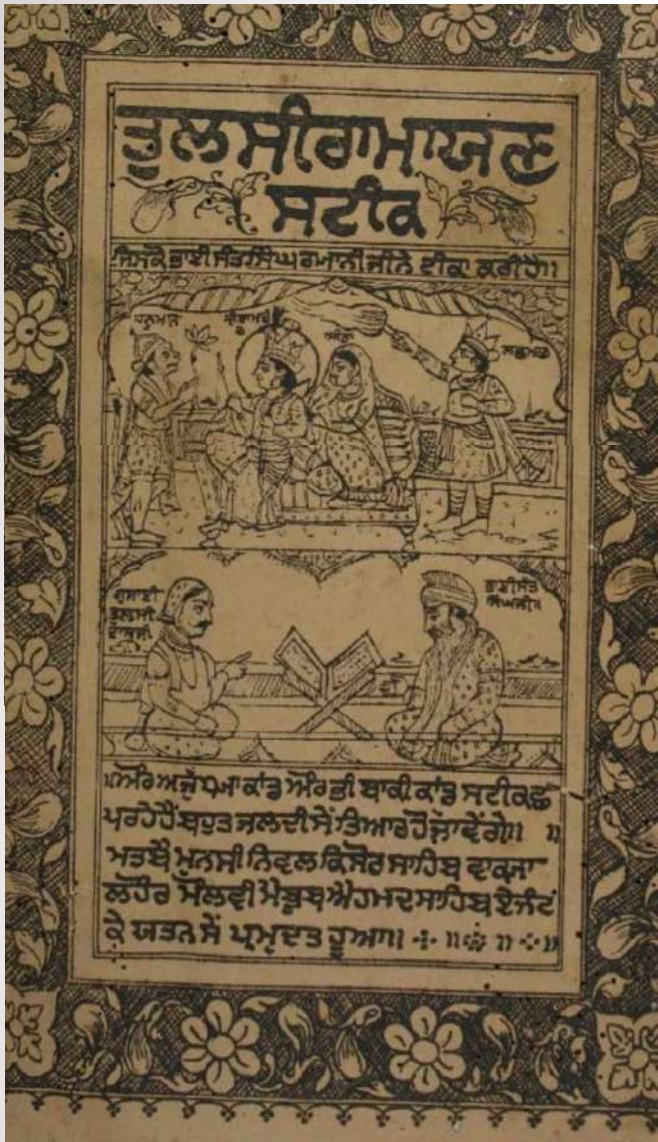 ਤੁਲਸੀਰਾਮਾਯਣ
ਸਟੀਕ
ਜਿਸਕੋ ਭਾਈ ਸੰਤਸਿੰਘ ਗਯਾਨੀ ਜੀਨੇ ਟੀਕਾ ਕਰੀਹੈ॥
ਹਨੁਮਾਨ
ਲਛਮਣ
ਗੁਸਾਈ
ਤੁਲਸੀ
ਦਾਸਜੀ
ਭਾਈਸੰਤ
ਸਿੰਘਜੀ
ਔਰ ਅਜੁੱਧਯਾ ਕਾਂਡ ਔਰ ਭੀ ਬਾਕੀ ਕਾਂਡ ਸਟੀਕ ਛ
ਪਰਹੇਹੈਂ ਬਹੁਤ ਜਲਦੀ ਸੇਂ ਤਿਆਰ ਹੋਜਾਵੇਂਗੇ॥ ॥
ਮਤਬੈ ਮੁਨਸੀ ਨਿਵਲ ਕਿਸੋਰ ਸਾਹਿਬ ਵਾਕਯਾ
ਲਾਹੌਰ ਮੌਲਵੀ ਮੈਬੂਬ ਐਹਮਦ ਸਾਹਿਬ ਏਜੰਟ
ਕੇ ਯਤਨ ਸੇਂ ਹੂਆ॥